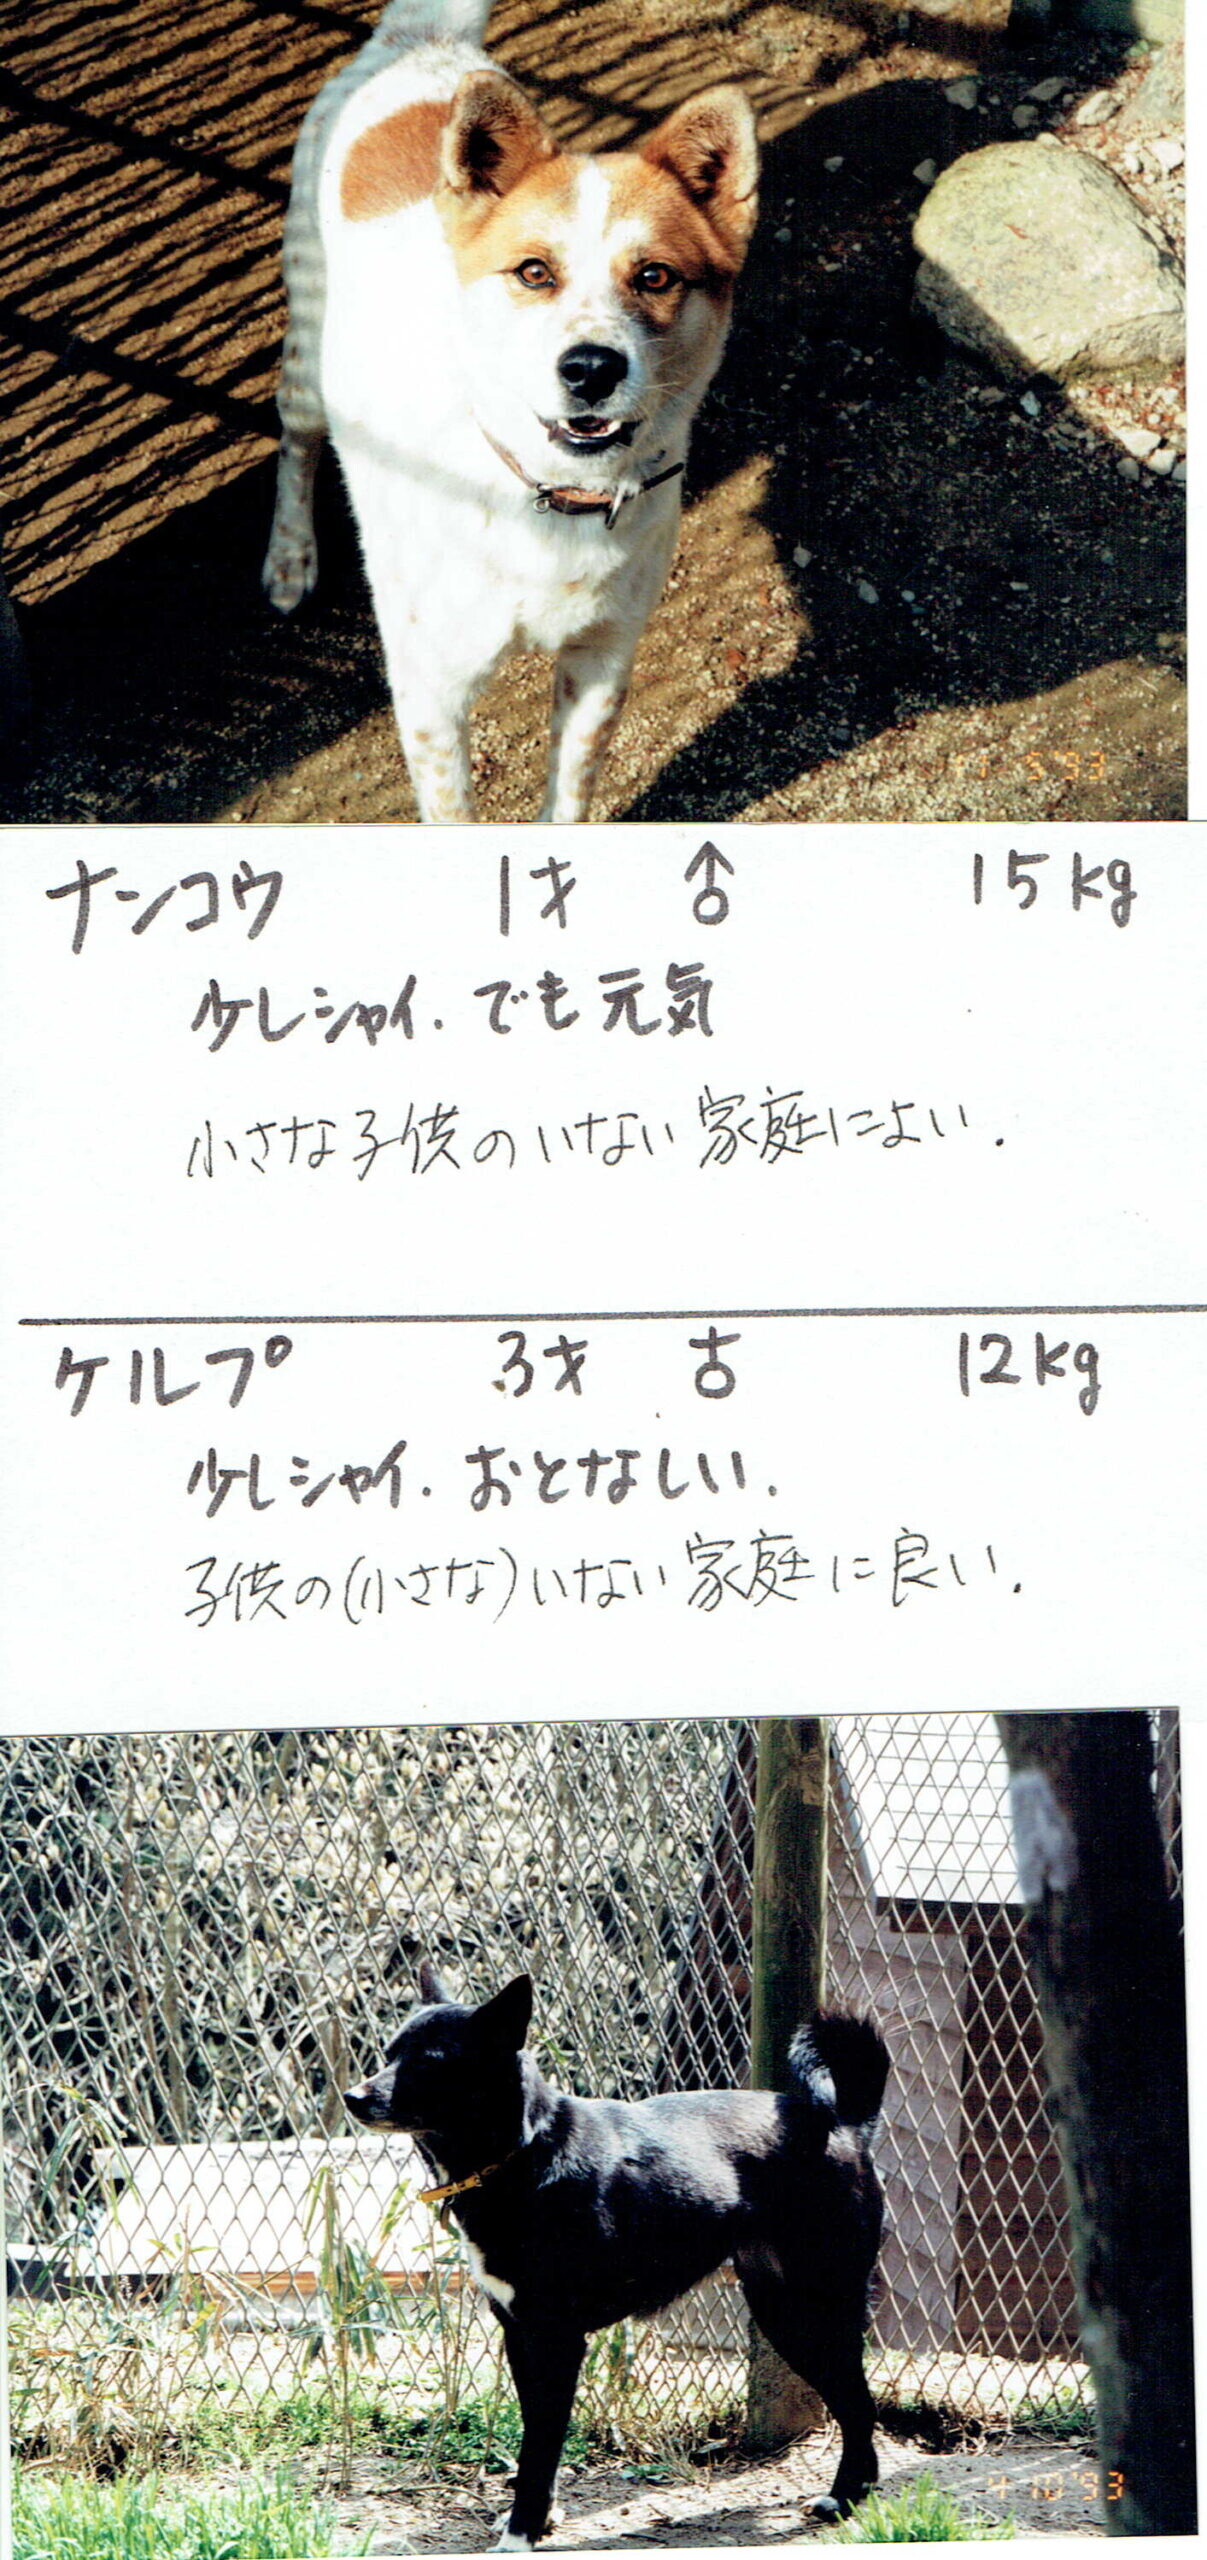 11 5'93
ナンコウ 1才 ♂ 15kg
少しシャイ.でも元気
小さな子供のいない家庭によい.
ケルプ 3才 ♂ 12kg
少しシャイ.おとなしい.
子供の(小さな)いない家庭に良い.
4 10'93